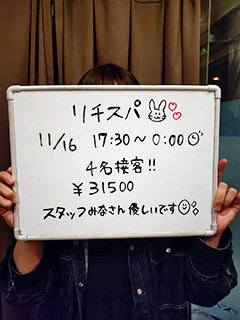 リチスパ
11/16 17:30～0:00
4名接客!!
¥31500
スタッフみなさん優しいです